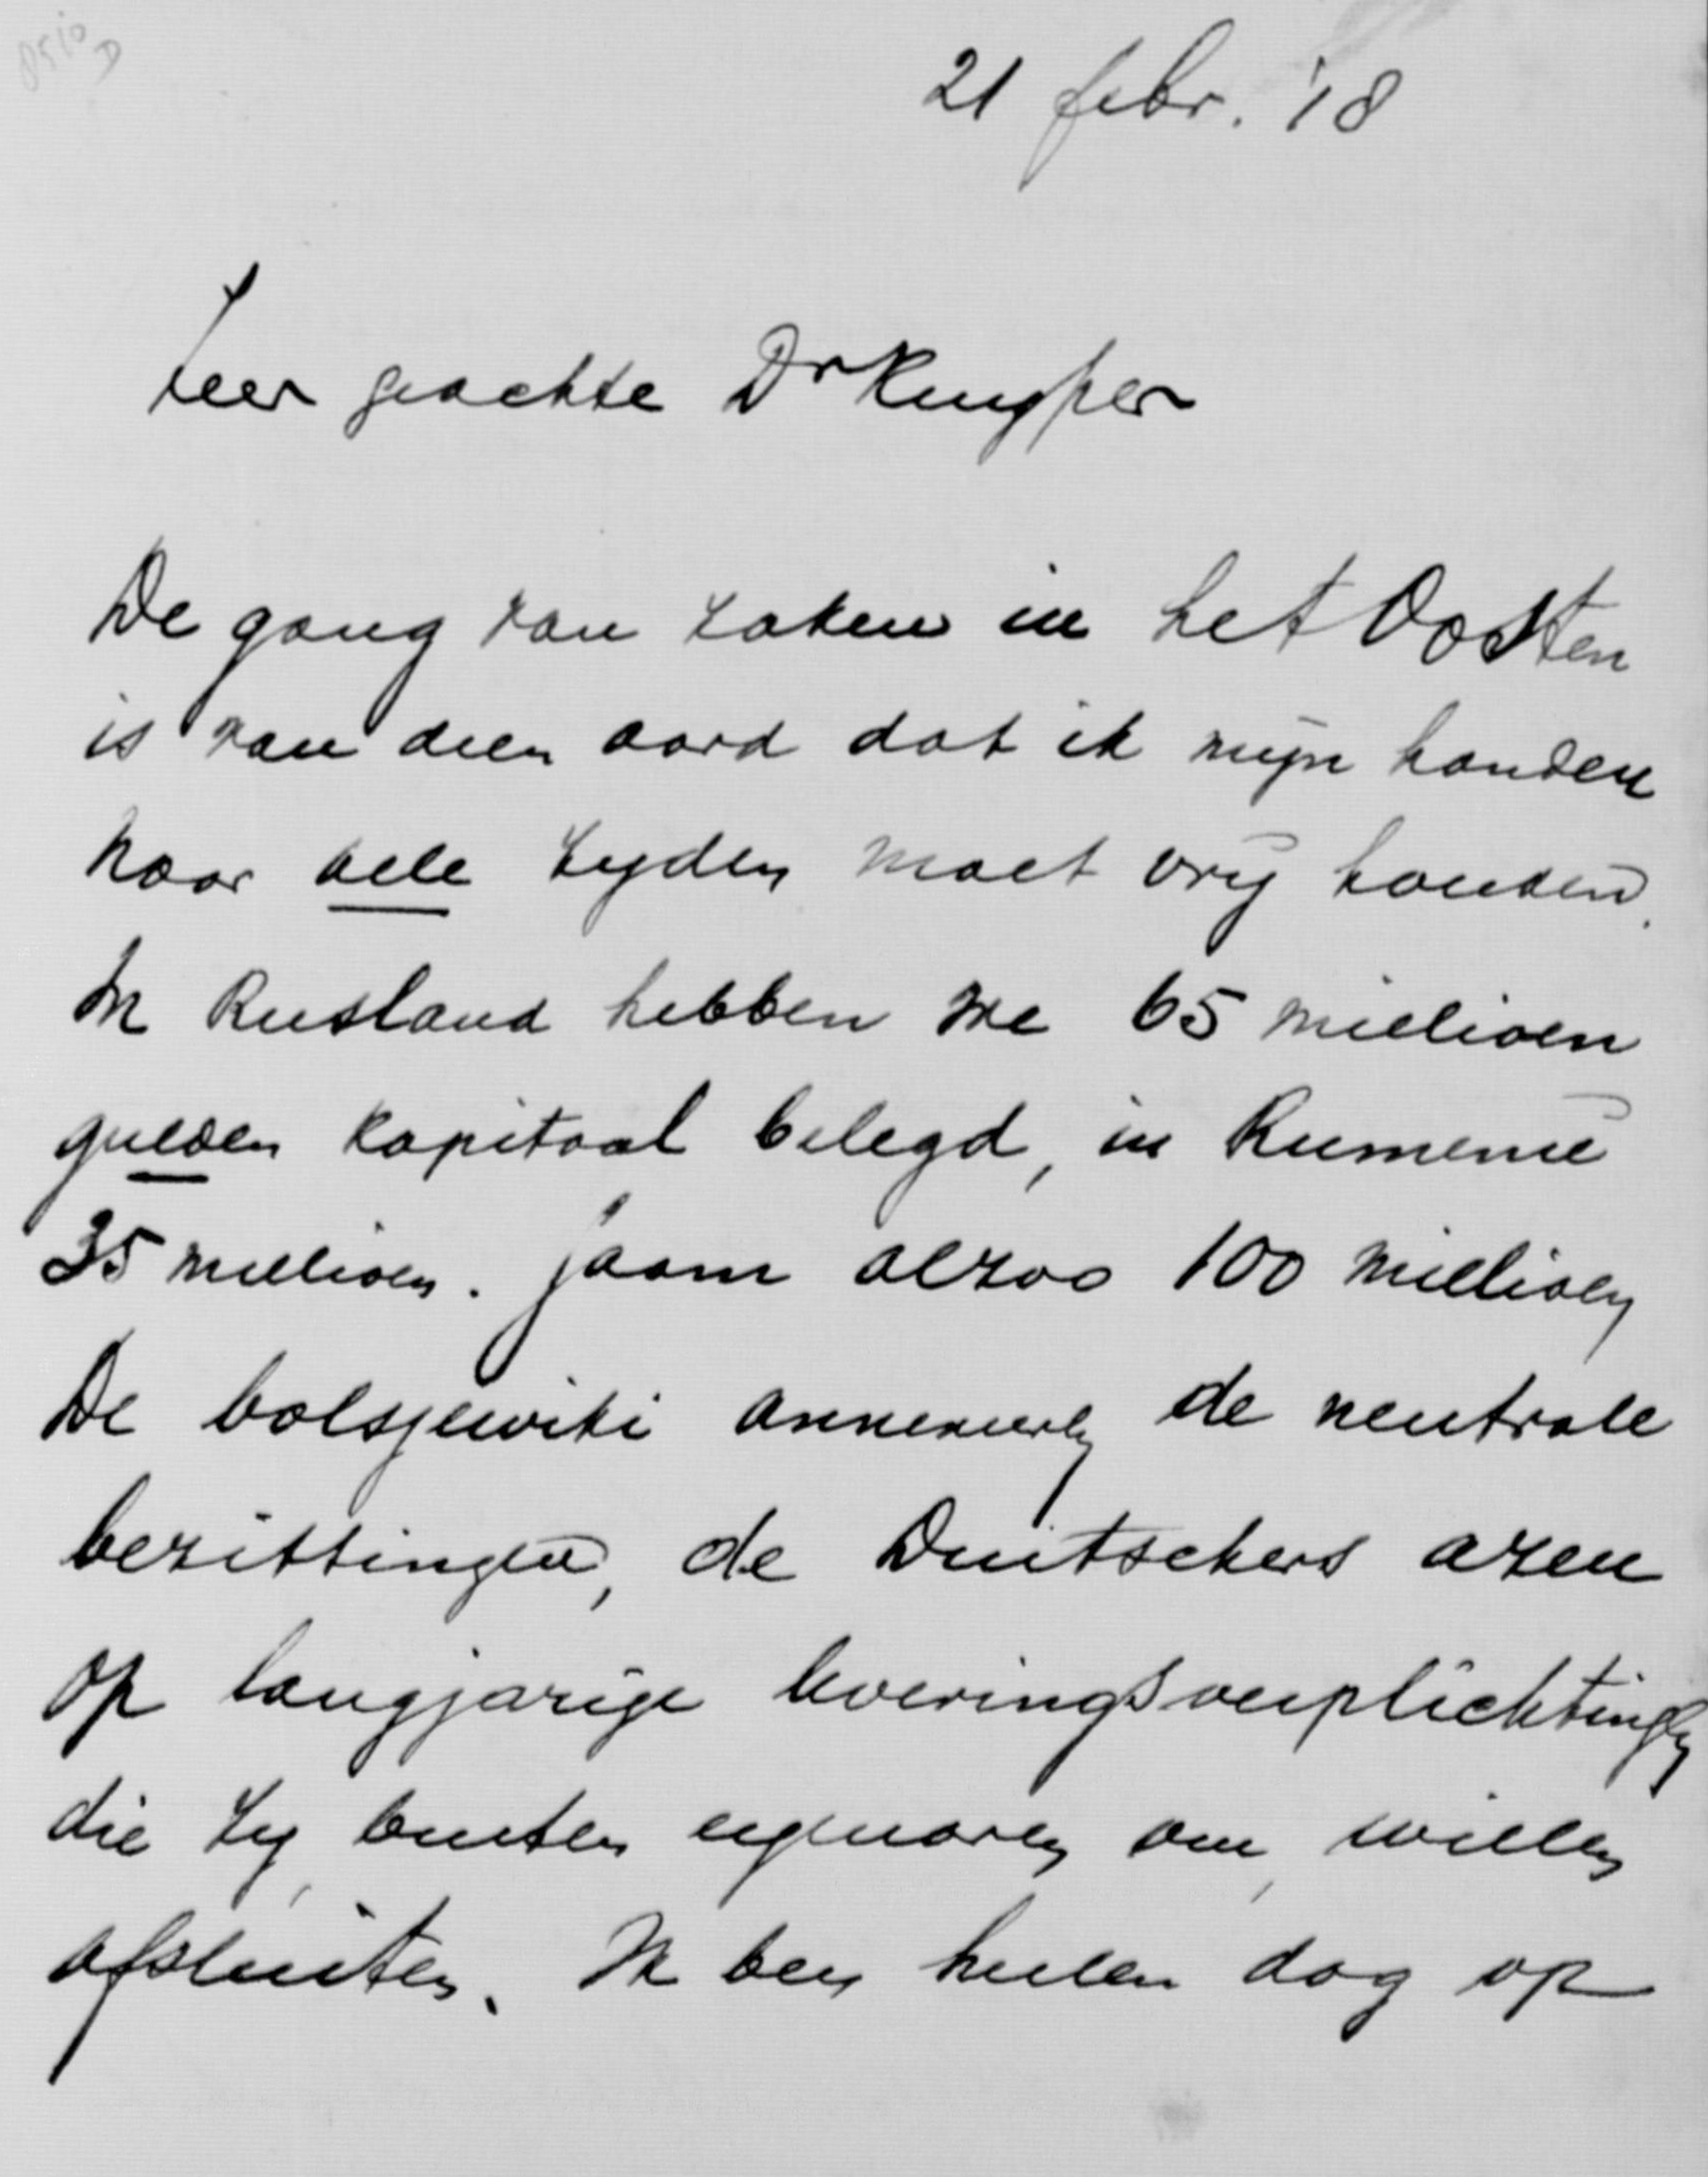 21 febr. '18
Zeer geachte Dr Kuyper
De gang van zaken in het Oosten
is van dien aard dat ik mijn handen
naar alle zyden moet vrij houden.
In Rusland hebben we 65 millioen
gulden kapitaal belegd, in Rumenië
35 millioen. Saam alzoo 100 millioen
De bolsjewiki annexeeren de neutrale
bezittingen, de Duitschers azen
op langjarige leveringsverplichtingen
die zy buiten eigenaren om willen
afsluiten. Ik ben heelen dag op